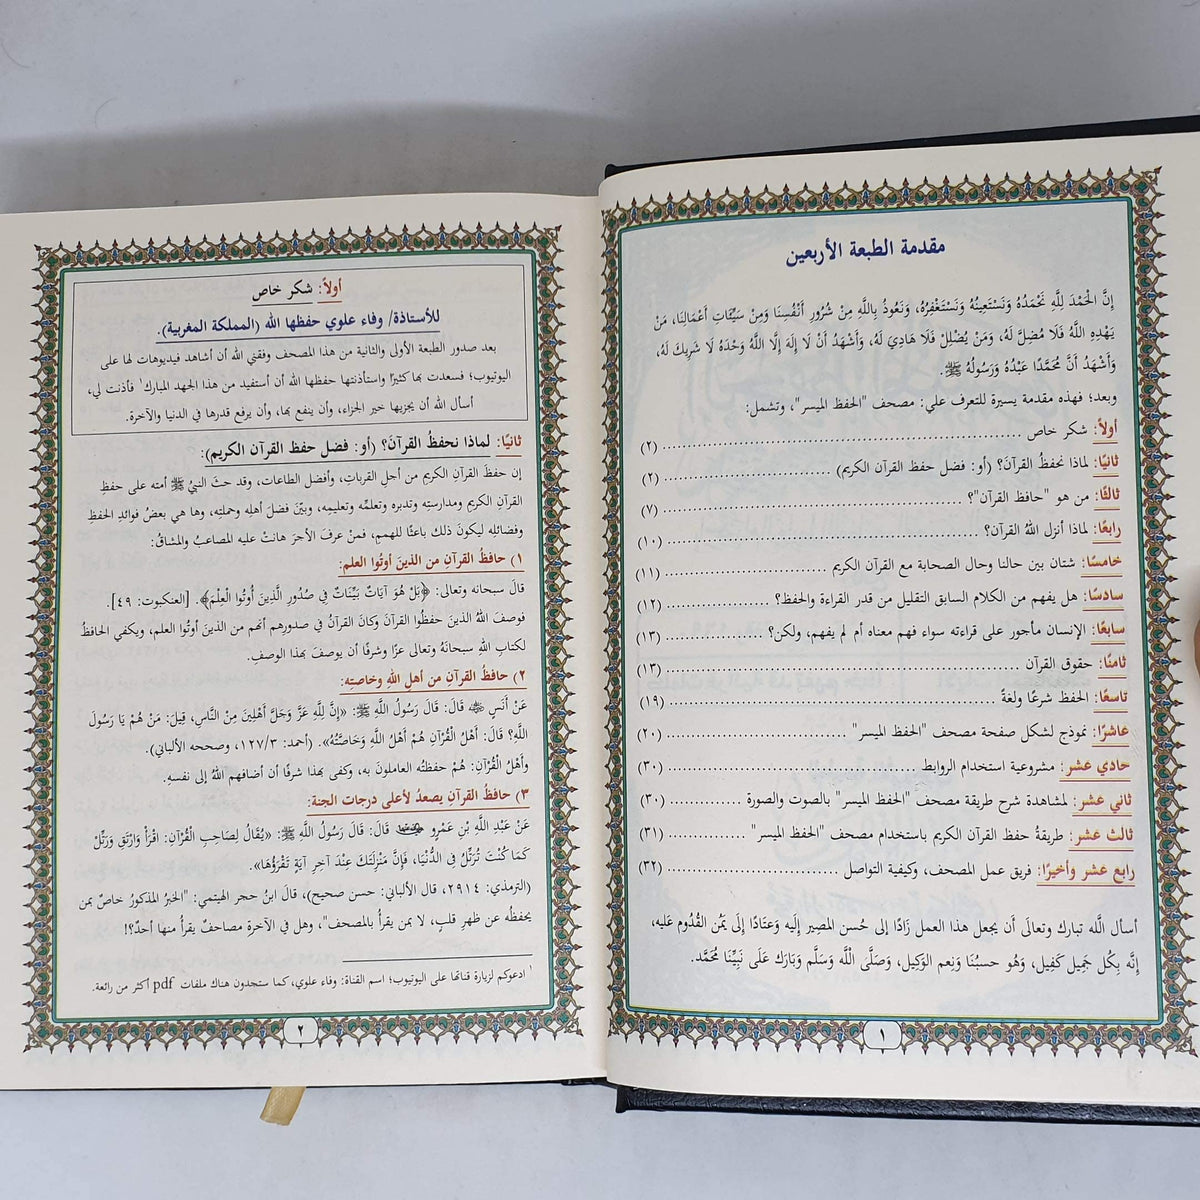 مقدمة الطبعة الأربعين
إِنَّ الْحَمْدَ لِلَّهِ نَحْمَدُهُ وَنَسْتَعِينُهُ وَنَسْتَغْفِرُهُ، وَنَعُوذُ بِاللَّهِ مِنْ شُرُورِ أَنْفُسِنَا وَمِنْ سَيِّئَاتِ أَعْمَالِنَا، مَنْ
يَهْدِهِ اللَّهُ فَلَا مُضِلَّ لَهُ، وَمَنْ يُضْلِلْ فَلَا هَادِيَ لَهُ، وَأَشْهَدُ أَنْ لَا إِلَهَ إِلَّا اللَّهُ وَحْدَهُ لَا شَرِيكَ لَهُ،
وَأَشْهَدُ أَنَّ مُحَمَّدًا عَبْدُهُ وَرَسُولُهُ ﷺ.
وبعد؛ فهذه مقدمة يسيرة للتعرف علي: مصحف "الحفظ الميسر"، وتشمل:
أولاً: شكر خاص (٢)
ثانيًا: لماذا نحفظُ القرآن؟ (أو: فضل حفظ القرآن الكريم) (٢)
ثالثًا: من هو "حافظ القرآن"؟ (٧)
رابعًا: لماذا أنزل اللهُ القرآن؟ (١٠)
خامسًا: شتان بين حالنا وحال الصحابة مع القرآن الكريم (١١)
سادسًا: هل يفهم من الكلام السابق التقليل من قدر القراءة والحفظ؟ (١٢)
سابعًا: الإنسان مأجور على قراءته سواء فهم معناه أم لم يفهم، ولكن؟ (١٣)
ثامنًا: حقوق القرآن (١٣)
تاسعًا: الحفظ شرعًا ولغةً (١٩)
عاشرًا: نموذج لشكل صفحة مصحف "الحفظ الميسر" (٢٠)
حادي عشر: مشروعية استخدام الروابط (٣٠)
ثاني عشر: لمشاهدة شرح طريقة مصحف "الحفظ الميسر" بالصوت والصورة (٣٠)
ثالث عشر: طريقةُ حفظ القرآن الكريم باستخدام مصحف "الحفظ الميسر" (٣١)
رابع عشر وأخيرًا: فريق عمل المصحف، وكيفية التواصل (٣٢)
أسأل الَّله تبارك وتعالَى أَن يجعل هذا العمل زَادًا إلَى حُسن المصير إلَيه وَعتَادًا إلَى يَمُن القُدُوم عَليه،
إِنَّه بِكُل جَميل كَفِيل، وَهُو حسبُنَا وَنِعم الوَكيل، وَصَلَّى الَّلُه وَسَلَّم وَبَارَك عَلَى نَبيِّنَا مُحَمَّد.
١
أولاً: شكر خاص
للأستاذة/ وفاء علوي حفظها الله (المملكة المغربية).
بعد صدور الطبعة الأولى والثانية من هذا المصحف وفقني الله أن أشاهد فيديوهات لها على
اليوتيوب؛ فسعدت بها كثيرًا واستأذنتها حفظها الله أن أستفيد من هذا الجهد المبارك١ فأذنت لي،
أسأل الله أن يجزيها خير الجزاء، وأن ينفع بها، وأن يرفع قدرها في الدنيا والآخرة.
ثانيًا: لماذا نحفظُ القرآنَ؟ (أو: فضل حفظ القرآن الكريم):
إن حفظَ القرآنِ الكريم من أجلِ القرباتِ، وأفضل الطاعات، وقد حثَ النبيُ ﷺ أمته على حفظِ
القرآنِ الكريم ومدارستِه وتدبره وتعلمِّه وتعليمِه، وبيّنَ فضلَ أهلِه وحملتِه، وها هي بعضُ فوائدِ الحفظِ
وفضائلِه ليكونَ ذلك باعثًا للهممِ، فمنْ عرفَ الأجرَ هانتْ عليه المصاعبُ والمشاقُ:
١) حافظُ القرآنِ من الذينَ أوتُوا العلم:
قالَ سبحانه وتعالى: ﴿بَلْ هُوَ آيَاتٌ بَيِّنَاتٌ فِي صُدُورِ الَّذِينَ أُوتُوا الْعِلْمَ﴾. [العنكبوت: ٤٩].
فوصفَ اللهُ الذينَ حفظُوا القرآنَ وكانَ القرآنُ في صدورِهم أنهم من الذينَ أوتُوا العلم، ويكفي الحافظُ
لكتابِ اللهِ سبحانهُ وتعالى عزًا وشرفًا أن يوصفَ بهذا الوصفِ.
٢) حافظُ القرآنِ من أهلِ اللهِ وخاصتِه:
عَنْ أَنَسٍ قَالَ: قَالَ رَسُولُ اللَّهِ ﷺ: «إِنَّ لِلَّهِ عَزَّ وَجَلَّ أَهْلِينَ مِنْ النَّاسِ، قِيلَ: مَنْ هُمْ يَا رَسُولَ
اللَّهِ؟ قَالَ: أَهْلُ الْقُرْآنِ هُمْ أَهْلُ اللَّهِ وَخَاصَّتُهُ». (أحمد: ١٢٧/٣، وصححه الألباني).
وأَهْلُ الْقُرْآنِ: هُمْ حفظتُه العاملونَ به، وكفى بهذا شرفًا أن أضافهم اللهُ إلى نفسِهِ.
٣) حافظُ القرآنِ يصعدُ لأعلى درجات الجنة:
عَنْ عَبْدِ اللَّهِ بْنِ عَمْرٍو قَالَ: قَالَ رَسُولُ اللَّهِ ﷺ: «يُقَالُ لِصَاحِبِ الْقُرْآنِ: اقْرَأْ وَارْتَقِ وَرَتِّلْ
كَمَا كُنْتَ تُرَتِّلُ فِي الدُّنْيَا، فَإِنَّ مَنْزِلَتَكَ عِنْدَ آخِرِ آيَةٍ تَقْرَؤُهَا».
(الترمذي: ٢٩١٤، قال الألباني: حسن صحيح)، قالَ ابنُ حجر الهيتمي: "الخبرُ المذكورُ خاصٌ بمن
يحفظُه عن ظهرِ قلبٍ، لا بمن يقرأُ بالمصحف"، وهل في الآخرةِ مصاحفُ يقرأُ منها أحدٌ؟!
١ ادعوكم لزيارة قناتها على اليوتيوب؛ اسم القناة: وفاء علوي، كما ستجدون هناك ملفات pdf أكثر من رائعة.
٢